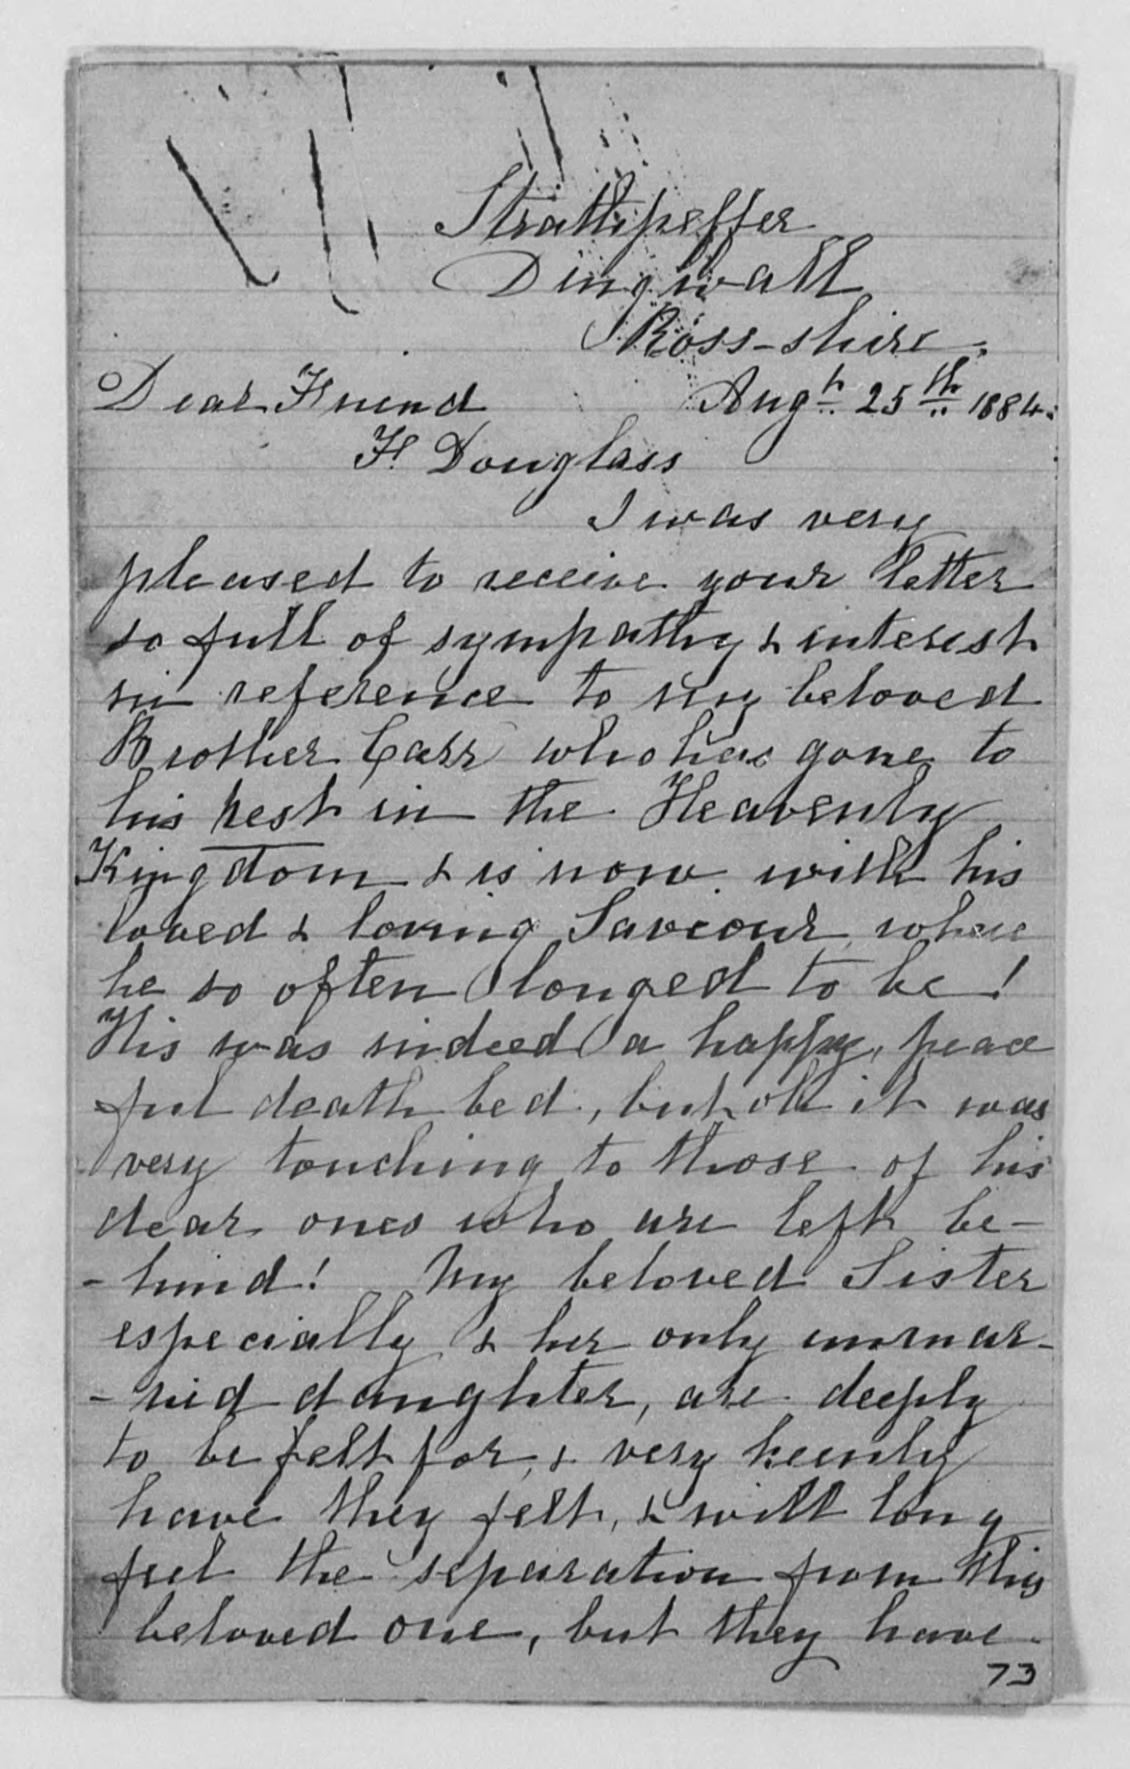 Strathpeffer
Dingwall
Ross-shire.
Dear Friend Augt. 25th 1884.
F. Douglass
I was very
pleased to receive your letter
so full of sympathy & interest
in reference to my beloved
Brother Carr who has gone to
his rest in the Heavenly
Kingdom & is now with his
loved & loving Saviour where
he so often longed to be!
His was indeed a happy, peace
ful death bed, but oh it was
very touching to those of his
dear ones who are left be-
-hind! My beloved Sister
especially & her only unmar-
-ried daughter, are deeply
to be felt for, & very keenly
have they felt, & will long
feel the separation from this
beloved one, but they have
73